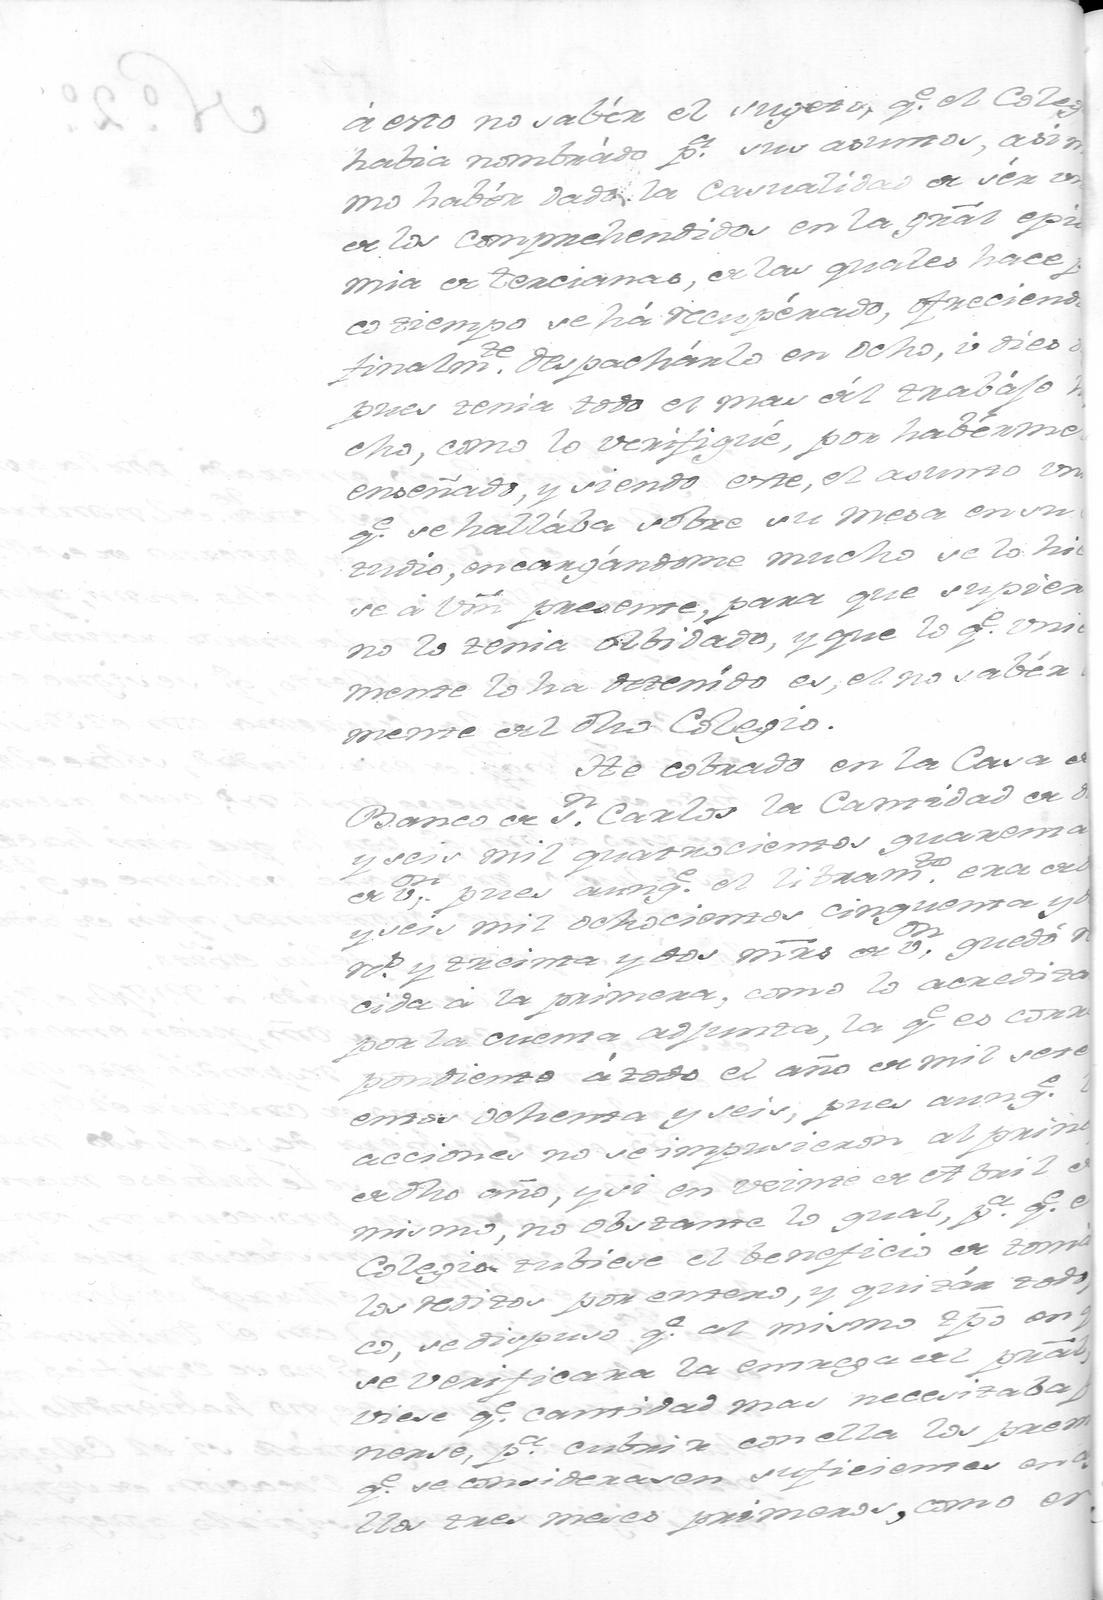 á esto no sabér el sugeto, q.e el Coleg
habia nombrádo p.a sus asumtos, asim
mo habér dado la Casualidad de sér un
de los comprehendidos en la grãl epi
mia de tercianas, de las quales hace p
co tiempo se há recupérado, ofreciend
finalm.te despachárlo en ocho, ú dies
pues tenia todo el mas del trabájo h
cho, como lo verifiqué, por habérme
enseñado, y siendo este, el asumto un
q.e se hallába sobre su mesa en su
tudio, encargándome mucho se lo hi
se á Vm̃ presente, para que supier
no lo tenia olbidado, y que lo q.e uni
mente lo ha detenido es, el no sabér
mente del dho Colegio.
He cobrado en la Casa de
Banco de S.n Carlos la Cantidad de d
y seis mil quatrocientos quarenta
de v.n, pues aunq.e el libram.to era de d
y seis mil ochocientos cinquenta y
r.s y treinta y dos mr̃s de v.n, quedó r
cida á la primera, como lo acredita
por la cuenta adjunta, la q.e es corr
pondiente á todo el año de mil sete
entos ochenta y seis, pues aunq.e l
acciones no se impusieron al prin
de dho año, y si en veinte de Abril d
mismo, no obstante lo qual, p.a q.e e
Colegio tubiese el beneficio de tomá
los reditos por entero, y quitár todo
co, se dispuso q.e al mismo tp̃o en q
se verificara la entrega del prãl,
viese q.e cantidad mas necesitaba p
nerse, p.a cubrir con ella los prem
q.e se considerasen suficientes en a
llos tres meses primeros, como en
Nº. 2º.